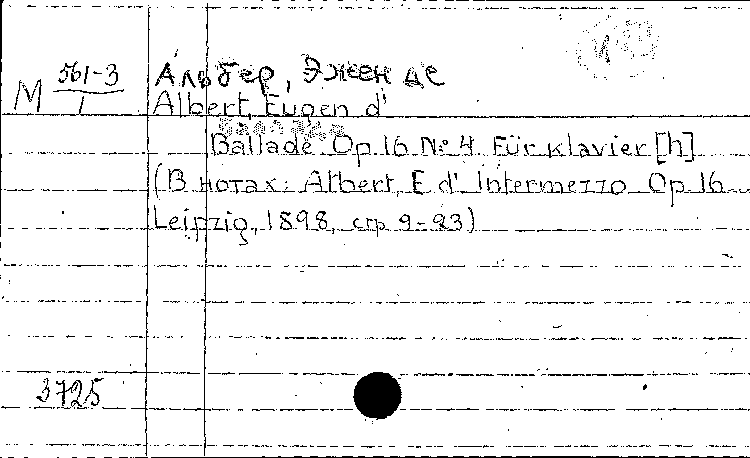 М 561-3/1
Альбер, Эжен де
Albert, Eugen d'
Баллада
Ballade. Op. 16 № 4. Für Klavier [h]
(В нотах: Albert, E. d' Intermezzo. Op. 16...
Leipzig, 1898, стр. 9-23)
3725